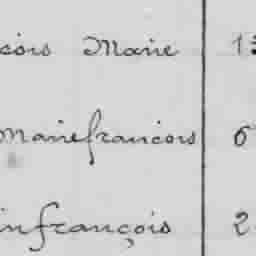 cois Marie 13
Mariefrancois 6
infrançois 2